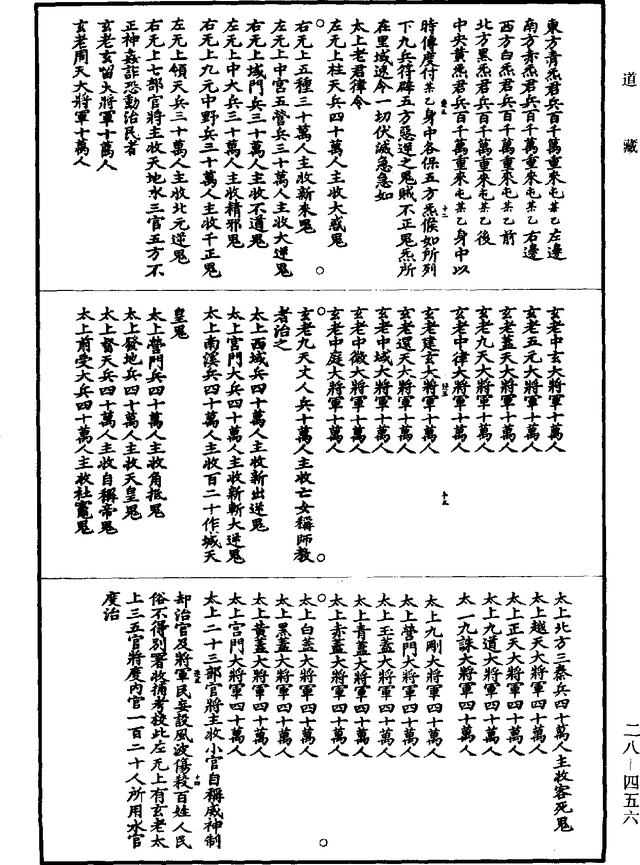 道藏
東方青炁君兵百千萬重來屯某乙左邊
南方赤炁君兵百千萬重來屯某乙右邊
西方白炁君兵百千萬重來屯某乙前
北方黑炁君兵百千萬重來屯某乙後
中央黃炁君兵百千萬重來屯某乙身中以
時傳度付某乙身中各保五方炁候如所列
下九兵符辟五方惡逆之鬼賊不正鬼炁所
在里域逆令一切伏滅急急如
太上老君律令
左无上柱天兵四十萬人主收大惑鬼
右无上五種三十萬人主收新來鬼
左无上中宮五營兵三十萬人主收大逆鬼
右无上城門兵三十萬人主收不道鬼
左无上中大兵三十萬人主收精邪鬼
右无上九元中野兵三十萬人主收千正鬼
左无上領天兵三十萬人主收北元逆鬼
右无上七部官將主收天地水三官五方不
正神姦詐恐動治民者
玄老玄留大將軍十萬人
玄老周天大將軍十萬人
玄老中玄大將軍十萬人
玄老五元大將軍十萬人
玄老蓋天大將軍十萬人
玄老九天大將軍十萬人
玄老中律大將軍十萬人
玄老建玄大將軍十萬人
玄老還天大將軍十萬人
玄老中城大將軍十萬人
玄老中微大將軍十萬人
玄老中庭大將軍十萬人
玄老九天丈人兵十萬人主收亡女稱師教
者治之
太上西城兵四十萬人主收新出逆鬼
太上宮門大兵四十萬人主收新斬大逆鬼
太上南溪兵四十萬人主收百二十作城天
皇鬼
太上營門兵四十萬人主收角抵鬼
太上發地兵四十萬人主收天皇鬼
太上督天兵四十萬人主收自稱帝鬼
太上前受大兵四十萬人主收社竈鬼
太上北方三秦兵四十萬人主收客死鬼
太上越天大將軍四十萬人
太上正天大將軍四十萬人
太上九道大將軍四十萬人
太一九誅大將軍四十萬人
太上九剛大將軍四十萬人
太上營門大將軍四十萬人
太上玉蓋大將軍四十萬人
太上青蓋大將軍四十萬人
太上赤蓋大將軍四十萬人
太上白蓋大將軍四十萬人
太上黑蓋大將軍四十萬人
太上黃蓋大將軍四十萬人
太上宮門大將軍四十萬人
太上二十三部官將主收小官自稱威神制
却治官及將軍民妄設風波傷殺百姓人民
俗不得別署收捕考校此左无上有玄老太
上三五官將度內官一百二十人所用水官
度治
二八—四五六